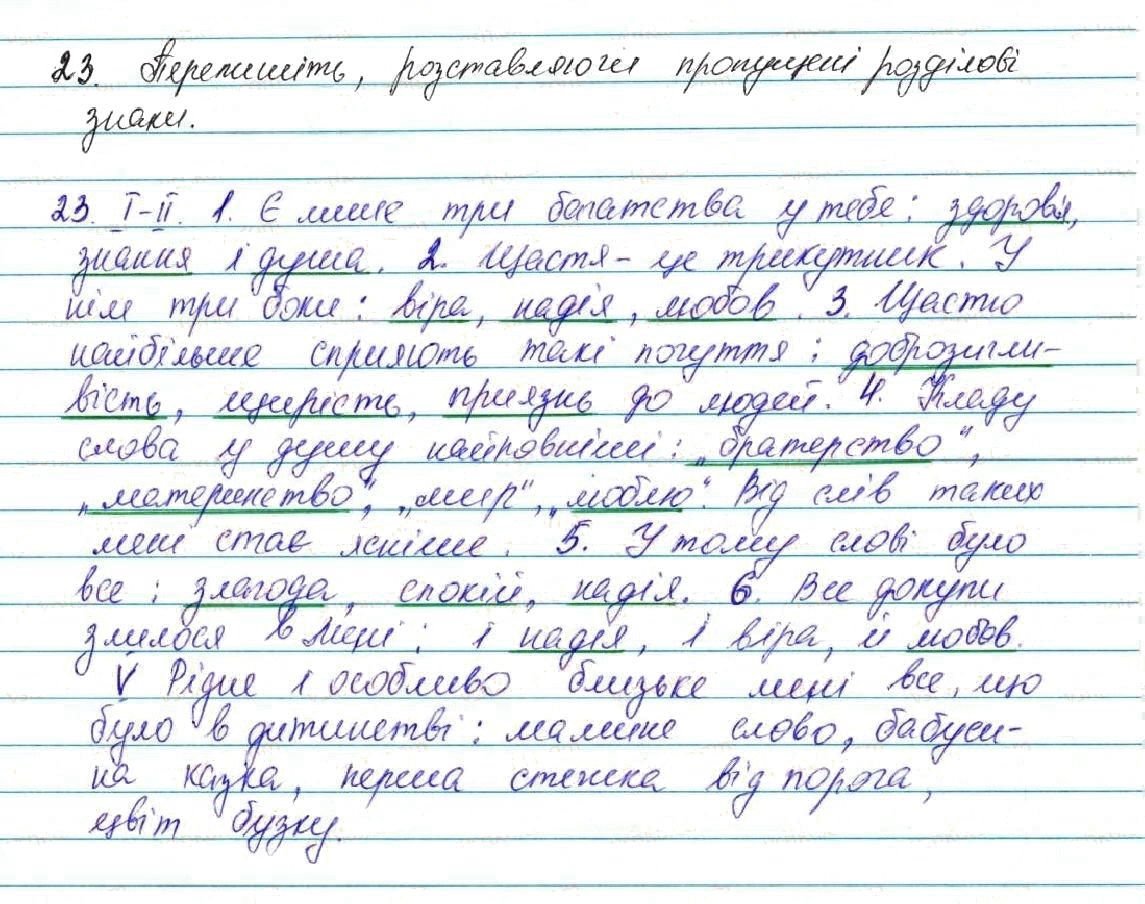 23. Перепишіть, розставляючи пропущені розділові
знаки.
23. I-II. 1. Є лише три багатства у тебе: здоровя,
знання і душа. 2. Щастя - це трикутник. У
нім три боки: віра, надія, любов. 3. Щастю
найбільше сприяють такі почуття: доброзичли-
вість, щирість, приязнь до людей. 4. Кладу
слова у душу найповніші: „братерство",
„материнство", „мир", „люблю". Від слів таких
мені стає ясніше. 5. У тому слові було
все: злагода, спокій, надія. 6. Все докупи
злилося в мені: і надія, і віра, й любов.
V Рідне і особливо близьке мені все, що
було в дитинстві: мамине слово, бабуси-
на казка, перша стежка від порога,
цвіт бузку.